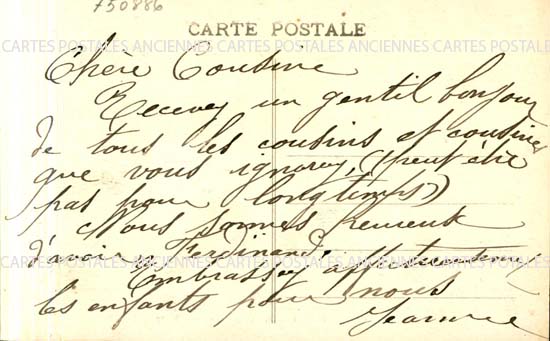 750886
CARTE POSTALE
CARTES POSTALES ANCIENNES CARTES POSTALES ANCIENNES CARTES POSTALES
Chère Cousine
Recevez un gentil bonjour
de tous les cousins et cousines
que vous ignorez, (peut être
pas pour longtemps)
Nous sommes heureux
d'avoir vu Ferdinand
Embrassez
les enfants pour nous
Jeanne